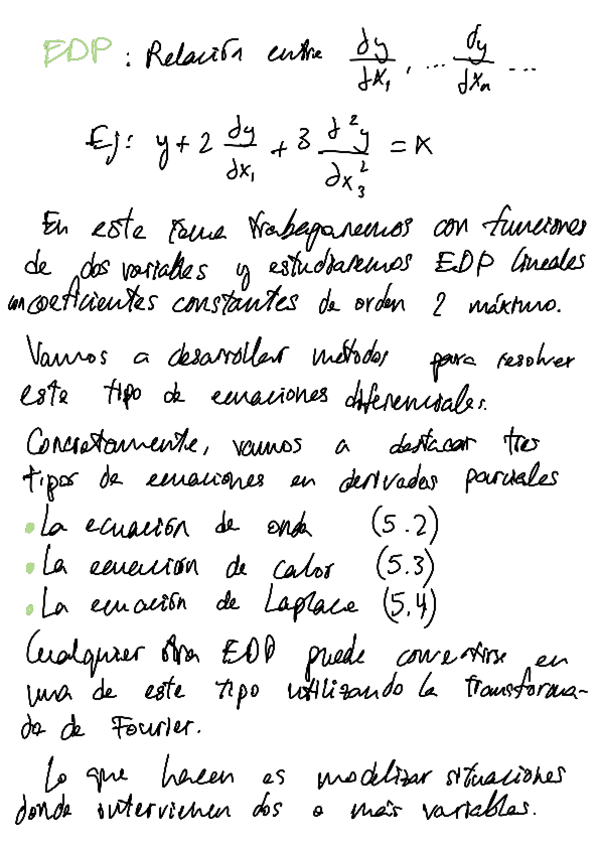 EDP : Relación entre ∂y/∂x₁, ... ∂y/∂xₙ ...
Ej: y + 2 ∂y/∂x₁ + 3 ∂²y/∂x₃² = x
En este tema trabajaremos con funciones
de dos variables y estudiaremos EDP lineales
con coeficientes constantes de orden 2 máximo.
Vamos a desarrollar métodos para resolver
este tipo de ecuaciones diferenciales.
Concretamente, vamos a destacar tres
tipos de ecuaciones en derivadas parciales
• La ecuación de onda (5.2)
• La ecuación de calor (5.3)
• La ecuación de Laplace (5.4)
Cualquier otra EDP puede convertirse en
una de este tipo utilizando la transforma-
da de Fourier.
Lo que hacen es modelizar situaciones
donde intervienen dos o más variables.